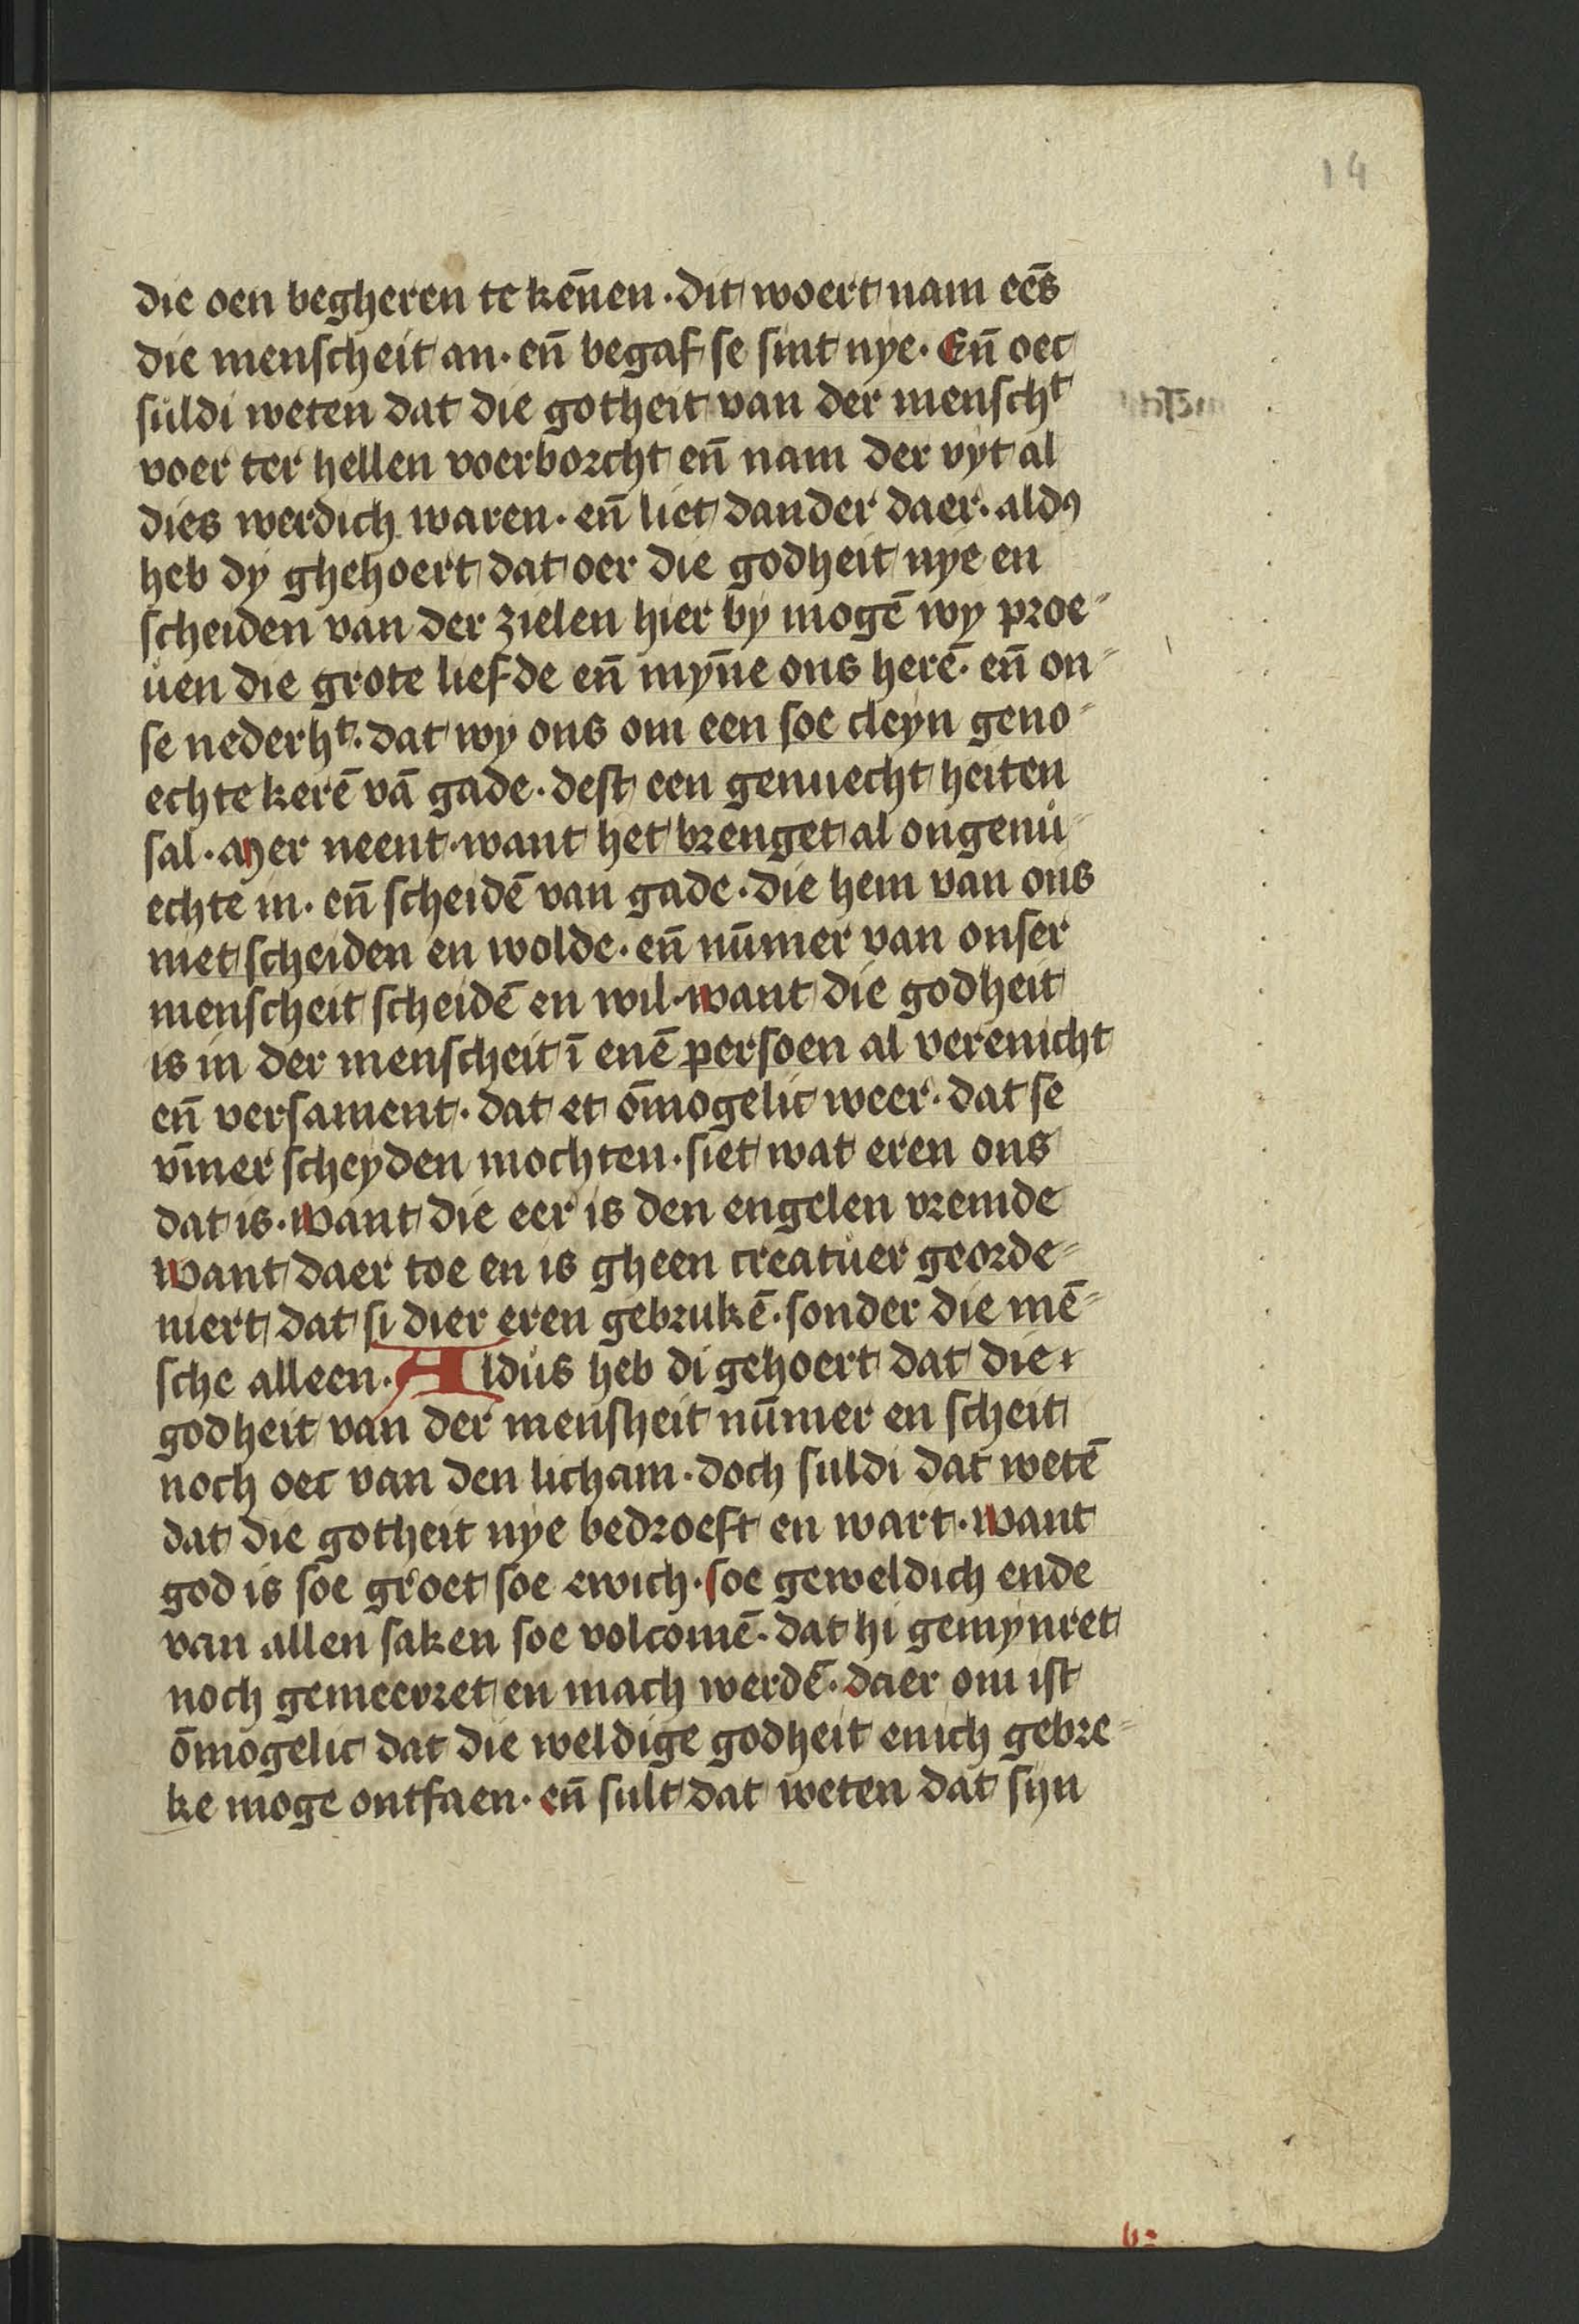 14
die oen begheren te kēnen · dit woert nam eēs
die menscheit an · en̄ begaf se sint nye · En̄ oec
suldi weten dat die gotheit van der menschᵗ
voer ter hellen voerborcht en̄ nam der vyt al
dies werdich waren · en̄ liet dander daer · aldꝰ
heb dy ghehoert dat oer die godheit nye en
scheiden van der zielen hier by mogē wy proe⸗
uen die grote liefde en̄ myn̄e ons herē · en̄ on⸗
se nederhᵗ · dat wy ons om een soe cleyn geno⸗
echte kerē vā gade · dest een genuecht heiten
sal · Mer neent · want het brenget al ongenu⸗
echte in · en̄ scheidē van gade · die hem van ons
niet scheiden en wolde · en̄ nūmer van onser
menscheit scheidē en wil · want die godheit
is in der menscheit ī enē persoen al verenicht
en̄ versament · dat et ōmogelic weer · dat se
vm̄er scheyden mochten · siet wat eren ons
dat is · want die eer is den engelen vremde
want daer toe en is gheen creatuer georde⸗
niert dat si dier eren gebrukē · sonder die mē⸗
sche alleen · Aldus heb di gehoert dat die
godheit van der mensheit nūmer en scheit
noch oec van den licham · doch suldi dat wetē
dat die gotheit nye bedroeft en wart · want
god is soe groet soe ewich · soe geweldich ende
van allen saken soe volcomē · dat hi gemynret
noch gemeerret en mach werdē · daer om ist
ōmogelic dat die weldige godheit enich gebre⸗
ke moge ontfaen · en̄ sult dat weten dat syn